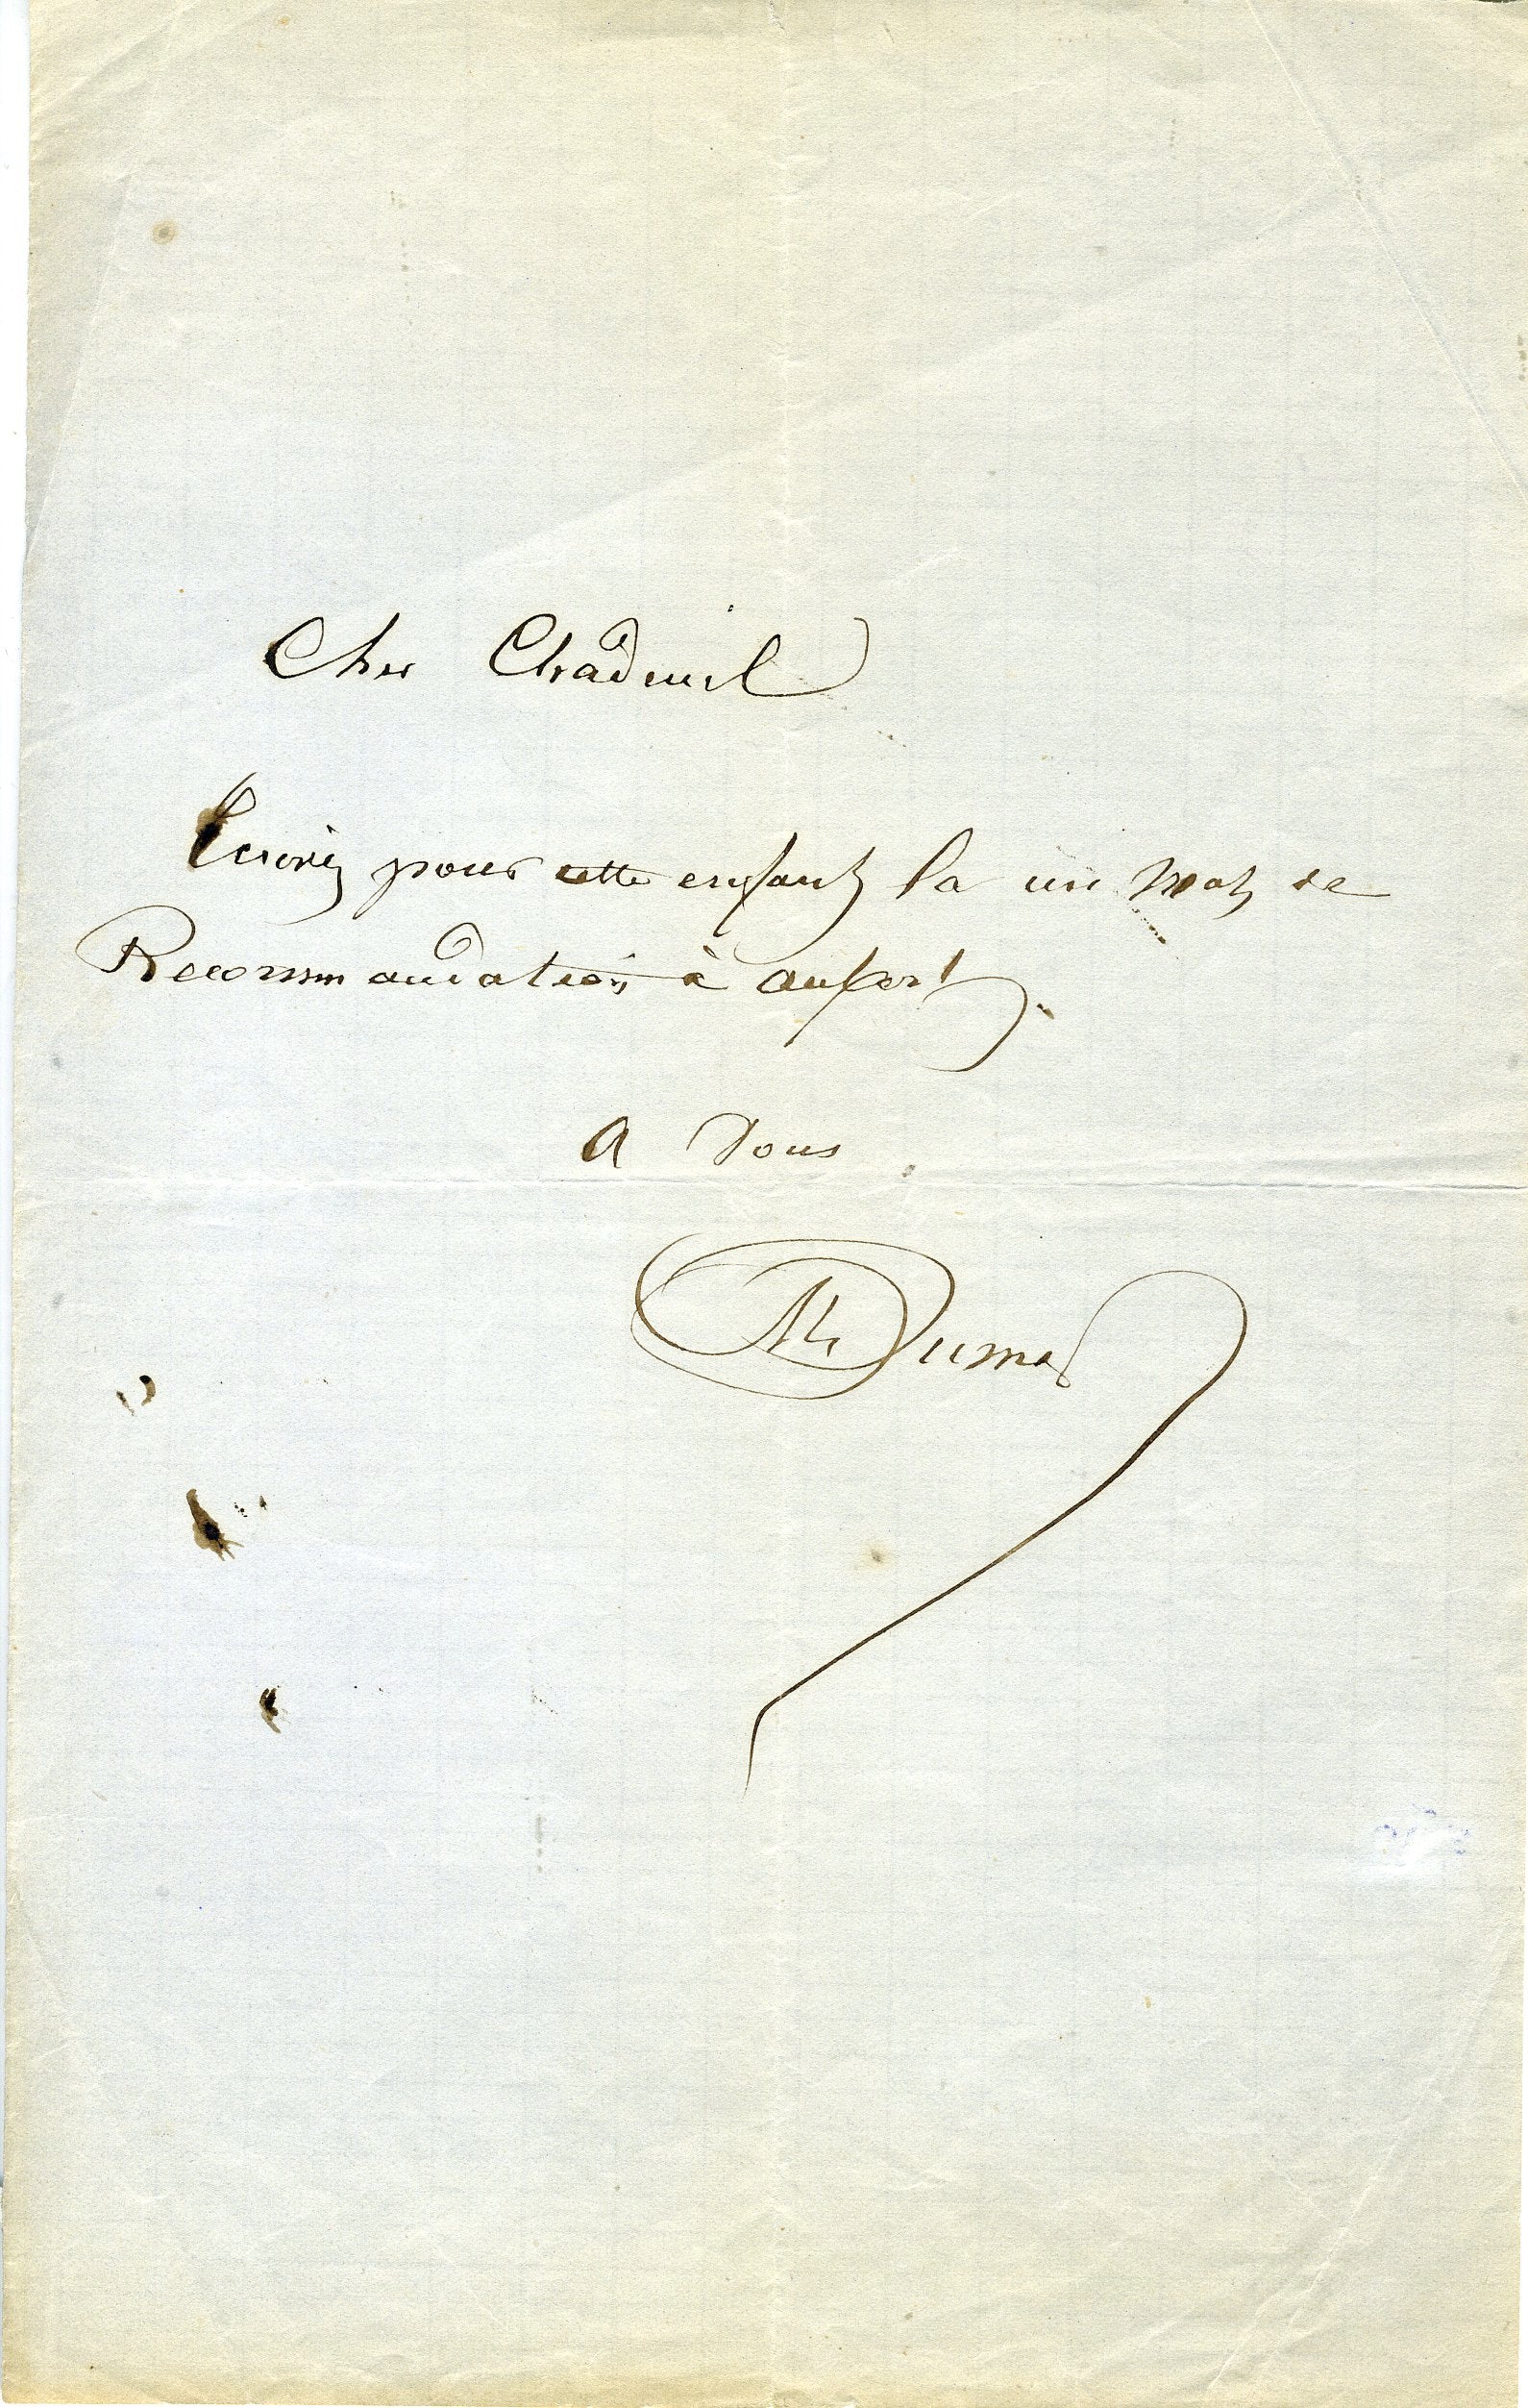 Cher Chadeuil
Ecrivez pour cette enfant la un mot de
Recommandation à
A vous
Al Dumas